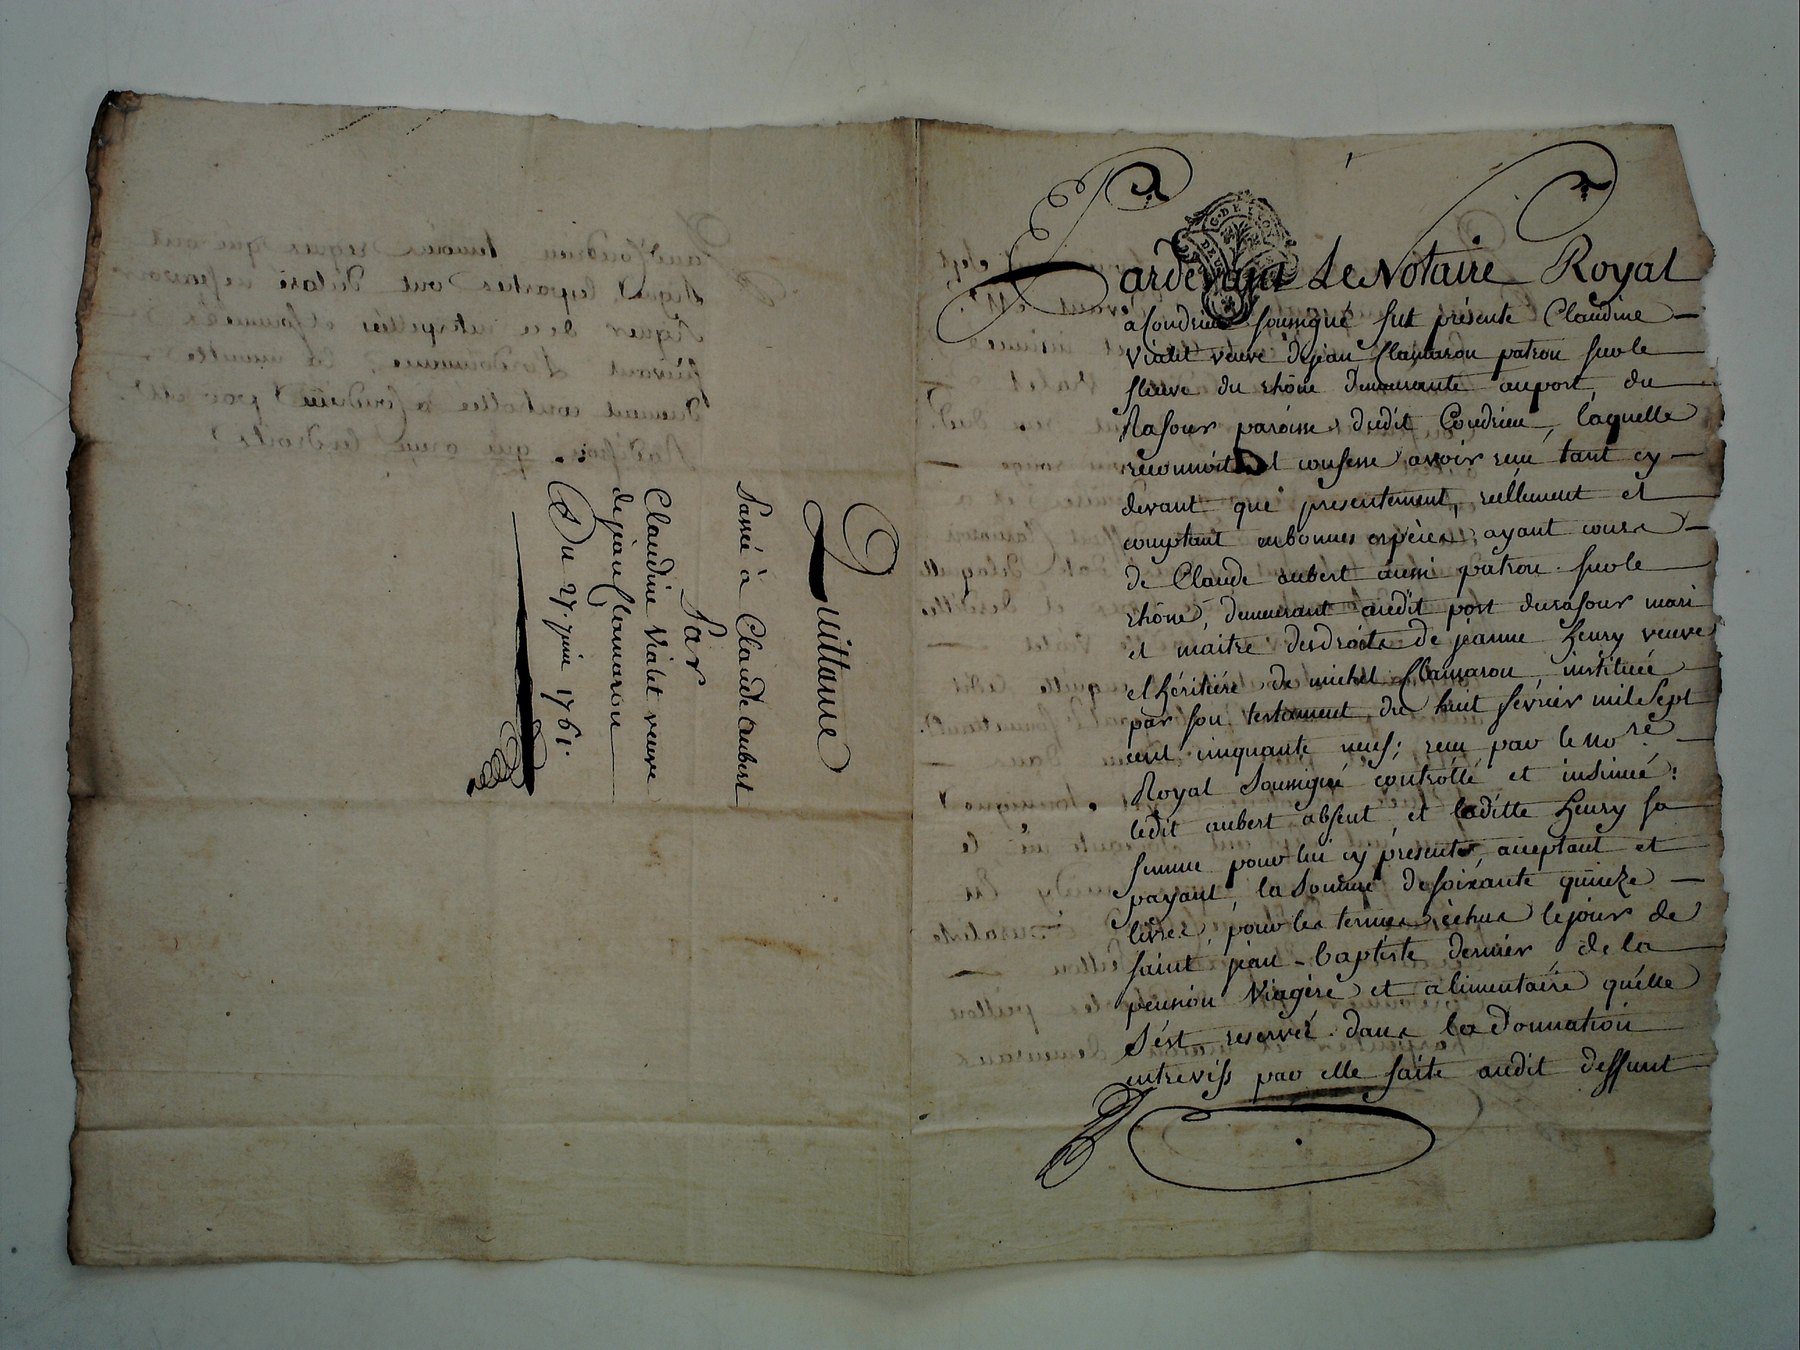 Quittance
Passée à Claude aubert
Par
Claudine Vialet veuve
de jean Clamaron
Du 27. juin 1761.
Pardevant Le Notaire Royal
a Condrieu soussigné fut présente Claudine
vialet veuve de jean Clamaron patron sur le
fleuve du rhône demeurante au port du
Rasour paroisse dudit Condrieu, laquelle
reconnoit et confesse avoir reçu tant cy
devant que presentement, reéllement et
comptant en bonnes espèces ayant cours
de Claude aubert aussi patron sur le
rhône, demeurant audit port du rasour mari
et maitre des droits de jeanne henry veuve
et héritière de michel Clamaron, instituée
par son testament du huit février mil sept
cent cinquante neuf; reçu par le no.re
Royal soussigné controllé et insinué;
ledit aubert absent, et laditte henry sa
femme pour lui cy présente, acceptant et
payant, la somme de soixante quinze
livres, pour les termes échus le jour de
saint jean-baptiste dernier de la
pension viagère et alimentaire qu'elle
s'est reservée dans la donnation
entrevifs par elle faite audit deffunt